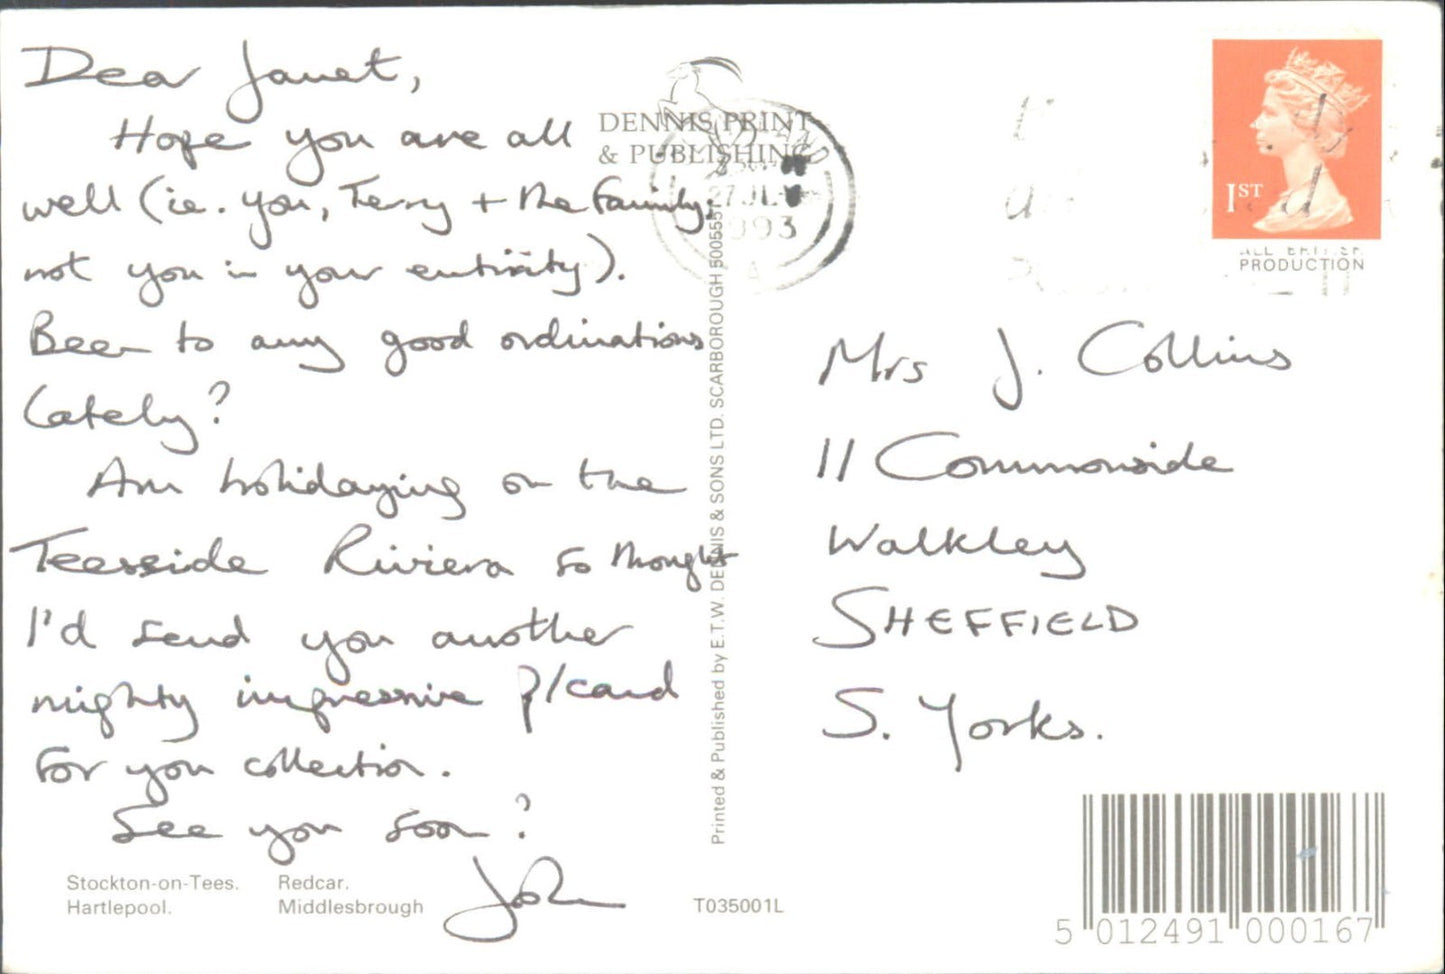 Dear Janet,
Hope you are all
well (ie. you, Terry + the family,
not you in your entirity).
Been to any good ordinations
lately?
Am holidaying on the
Teesside Riviera so thought
I'd send you another
mighty impressive p/card
for you collection.
See you soon?
John
Stockton-on-Tees. Redcar.
Hartlepool. Middlesbrough
DENNIS PRINT
& PUBLISHING
27 JLY
1993
A
Printed & Published by E.T.W. DENNIS & SONS LTD. SCARBOROUGH 500555
T035001L
1ST
ALL BRITISH
PRODUCTION
Mrs J. Collins
11 Commonside
Walkley
SHEFFIELD
S. Yorks.
5 012491 000167